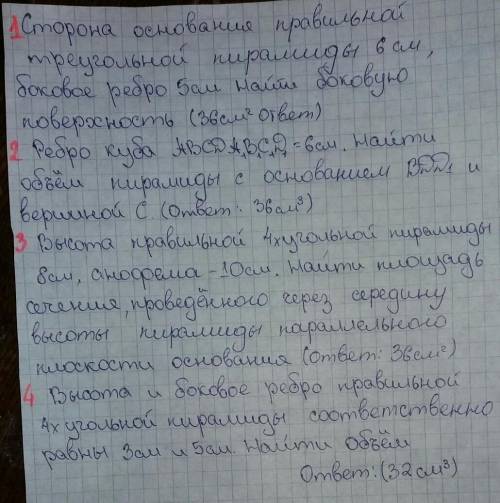 1 Сторона основания правильной
треугольной пирамиды 6 см,
боковое ребро 5см Найти боковую
поверхность (36см² ответ)
2 Ребро куба ABCDA₁B₁C₁D₁ = 6см. Найти
объём пирамиды с основанием BDD₁ и
вершиной C. (Ответ: 36см³)
3 Высота правильной 4хугольной пирамиды
8см, апофема - 10см. Найти площадь
сечения, проведённого через середину
высоты пирамиды параллельного
плоскости основания (Ответ: 36см²)
4 Высота и боковое ребро правильной
4хугольной пирамиды соответственно
равны 3см и 5см. Найти объём
Ответ: (32см³)